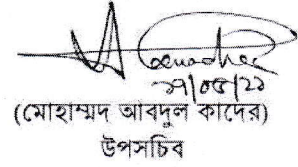 ২৭/০৫/২১
(মোহাম্মদ আবদুল কাদের)
উপসচিব